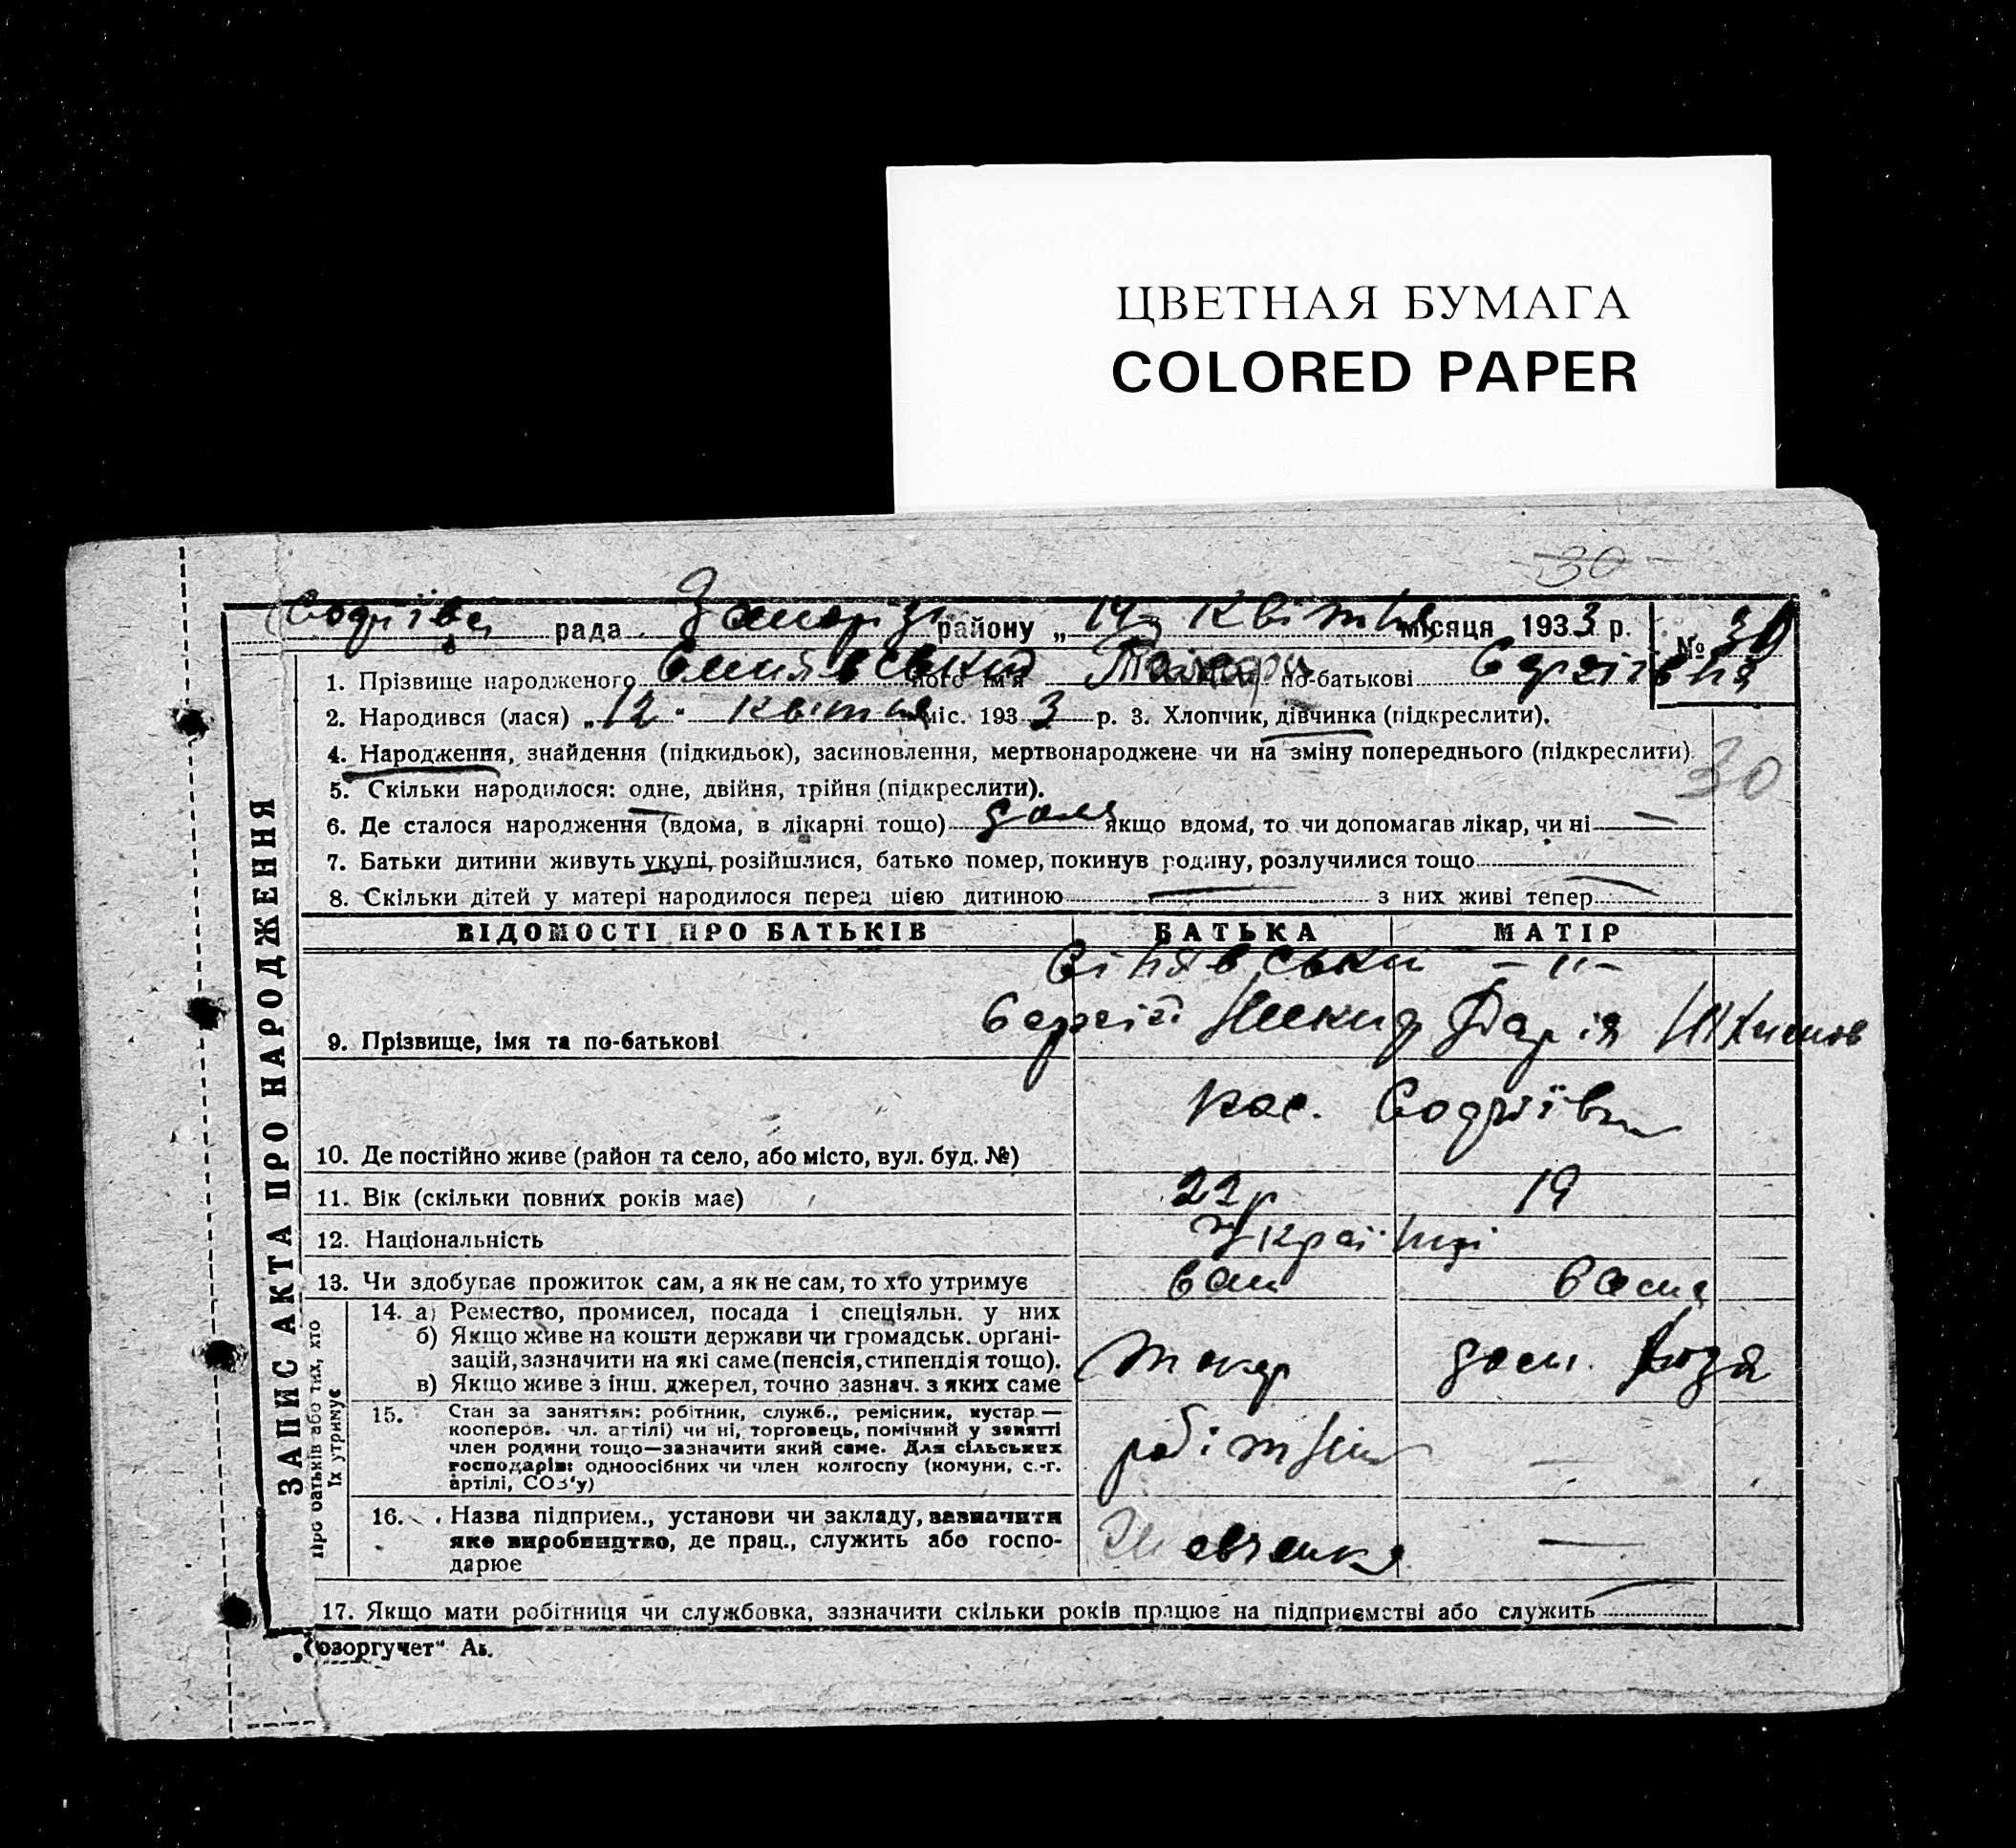 ЦВЕТНАЯ БУМАГА
COLORED PAPER
30
рада району „14" квітня місяця 1933 р. № 30
1. Прізвище народженого його ім'я по-батькові Сергіївна
2. Народився (лася) „12" квітня міс. 1933 р. 3. Хлопчик, дівчинка (підкреслити).
4. Народження, знайдення (підкидьок), засиновлення, мертвонароджене чи на зміну попереднього (підкреслити)
30
5. Скільки народилося: одне, двійня, трійня (підкреслити).
6. Де сталося народження (вдома, в лікарні тощо) дома якщо вдома, то чи допомагав лікар, чи ні —
7. Батьки дитини живуть укупі, розійшлися, батько помер, покинув родину, розлучилися тощо
8. Скільки дітей у матері народилося перед цією дитиною — з них живі тепер —
ВІДОМОСТІ ПРО БАТЬКІВ БАТЬКА МАТІР
Сінявськи — " —
9. Прізвище, імя та по-батькові Сергій Дарія
10. Де постійно живе (район та село, або місто, вул. буд. №)
11. Вік (скільки повних років має) 22 р 19
12. Національність Українці
13. Чи здобуває прожиток сам, а як не сам, то хто утримує сам
14. а) Ремество, промисел, посада і спеціяльн. у них
б) Якщо живе на кошти держави чи громадськ. орґані-
зацій, зазначити на які саме (пенсія, стипендія тощо).
в) Якщо живе з інш. джерел, точно зазнач. з яких саме
токар дом.
15. Стан за заняттям: робітник, служб., ремісник, кустар —
кооперов. чл. артілі) чи ні, торговець, помічний у занятті
член родини тощо—зазначити який саме. Для сільських
господарів: одноосібних чи член колгоспу (комуни, с.-г.
артілі, СОЗ'у)
робітник —
16. Назва підприєм., установи чи закладу, зазначити
яке виробництво, де прац., служить або госпо-
дарює
Шевченка —
17. Якщо мати робітниця чи службовка, зазначити скільки років працює на підприємстві або служить —
ЗАПИС АКТА ПРО НАРОДЖЕННЯ
Про батьків або тих, хто
їх утримує